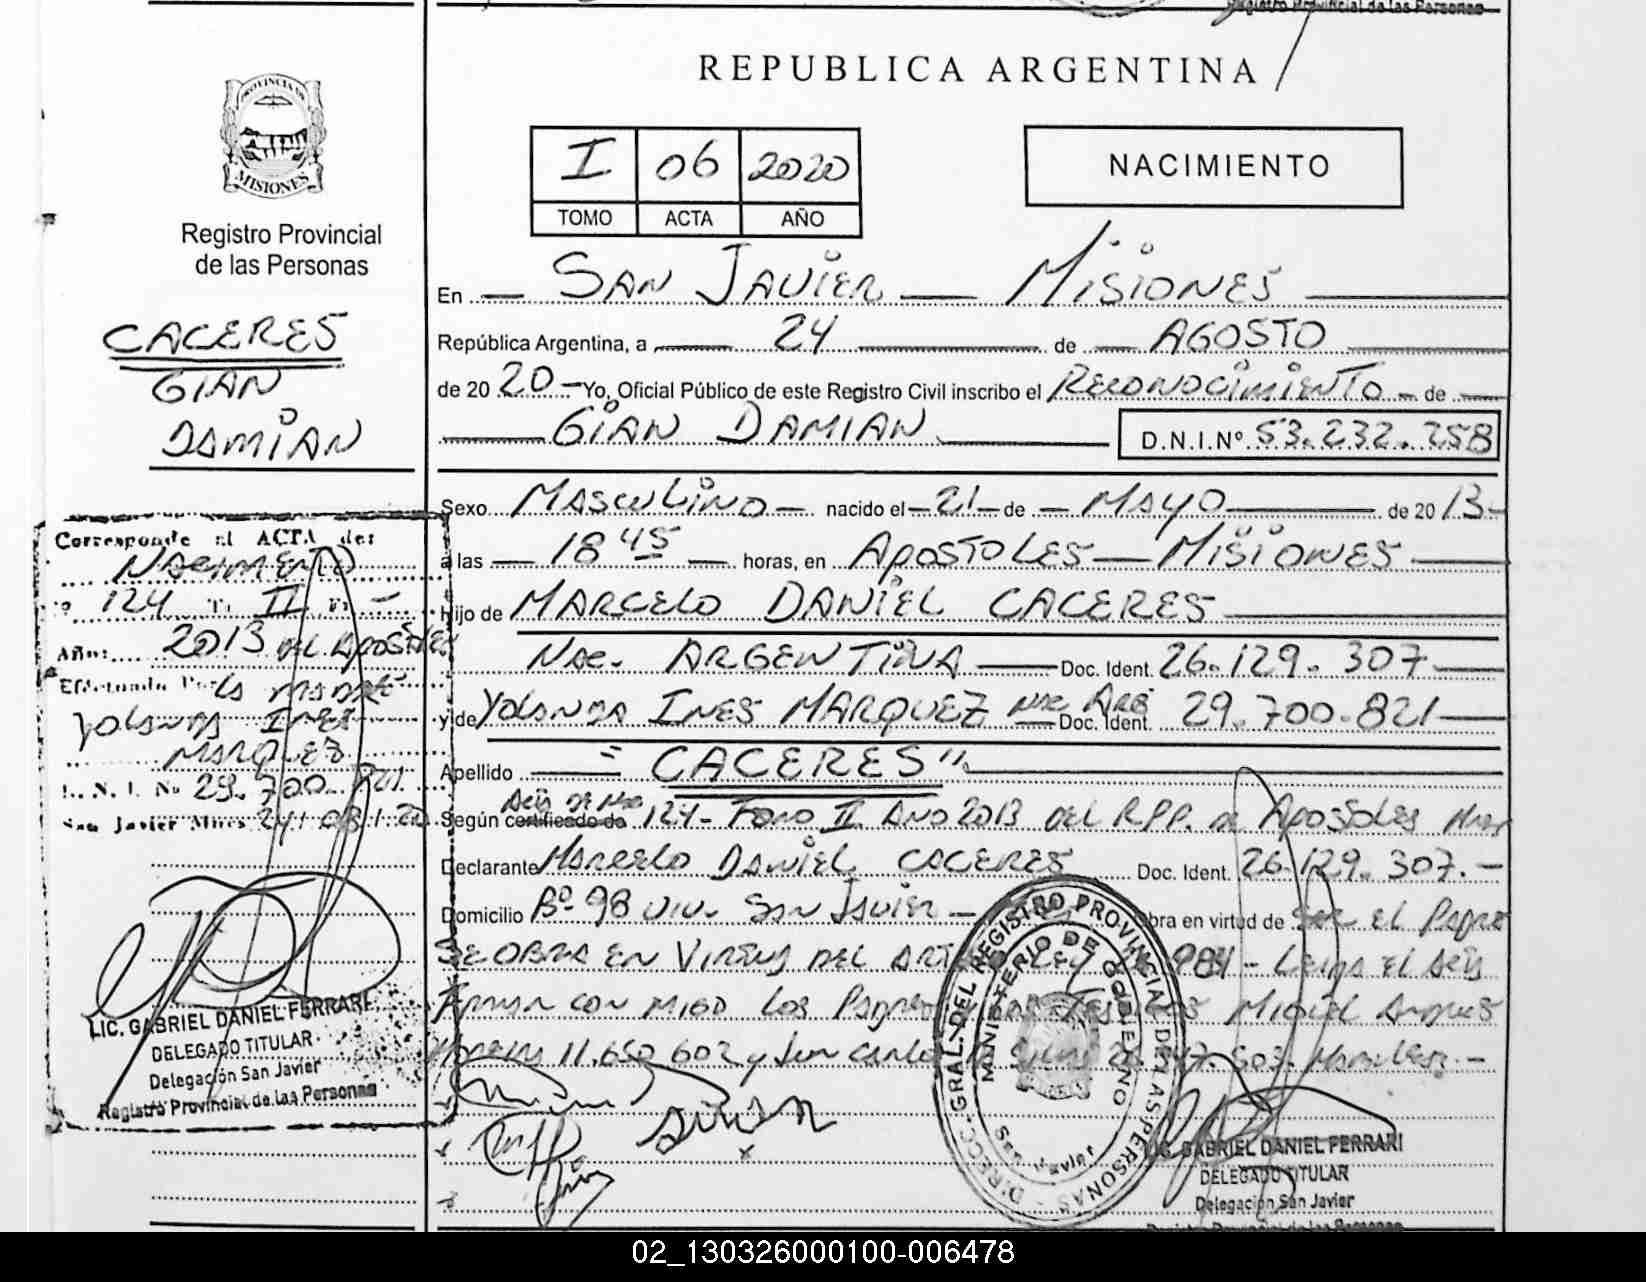 Registro Provincial de las Personas
REPUBLICA ARGENTINA
PROVINCIA DE
MISIONES
Registro Provincial
de las Personas
CACERES
GIAN
DAMIAN
I 06 2020
TOMO ACTA AÑO
NACIMIENTO
En SAN JAVIER MISIONES
República Argentina, a 24 de AGOSTO
de 20 20 Yo, Oficial Público de este Registro Civil inscribo el RECONOCIMIENTO de
GIAN DAMIAN D.N.I.Nº 53.232.258
Sexo MASCULINO nacido el 21 de MAYO de 20 13
a las 18 45 horas, en APOSTOLES MISIONES
Hijo de MARCELO DANIEL CACERES
NAC. ARGENTINA Doc. Ident. 26.129.307
y de YOLANDA INES MARQUEZ NAC ARG Doc. Ident. 29.700.821
Apellido "CACERES"
Según certificado de ACTA DE NAC 124 - TOMO II AÑO 2013 DEL R.P.P. DE APOSTOLES
Declarante MARCELO DANIEL CACERES Doc. Ident. 26.129.307.-
Domicilio Bº 98 VIV. SAN JAVIER - obra en virtud de SER EL PADRE
SE OBRA EN VIRTUD DEL ART LEY - LEIDA EL ACTA
FIRMAN CON MIGO LOS PADRES MIGUEL
11.650.602 y JUAN CARLOS 503.
Corresponde al ACTA de:
NACIMIENTO
124 T: II F: -
Año: 2013 DEL APOSTOLES
Efectuado Por LA MADRE
YOLANDA INES
MARQUEZ
D. N. I. No 29.700.821
San Javier Mnes 24/08/20
LIC. GABRIEL DANIEL FERRARI
DELEGADO TITULAR
Delegación San Javier
Registro Provincial de las Personas
DIRECC. GRAL. DEL REGISTRO PROVINCIAL DE LAS PERSONAS
MINISTERIO DE GOBIERNO
San Javier
LIC. GABRIEL DANIEL FERRARI
DELEGADO TITULAR
Delegación San Javier
Registro Provincial de las Personas
02_130326000100-006478